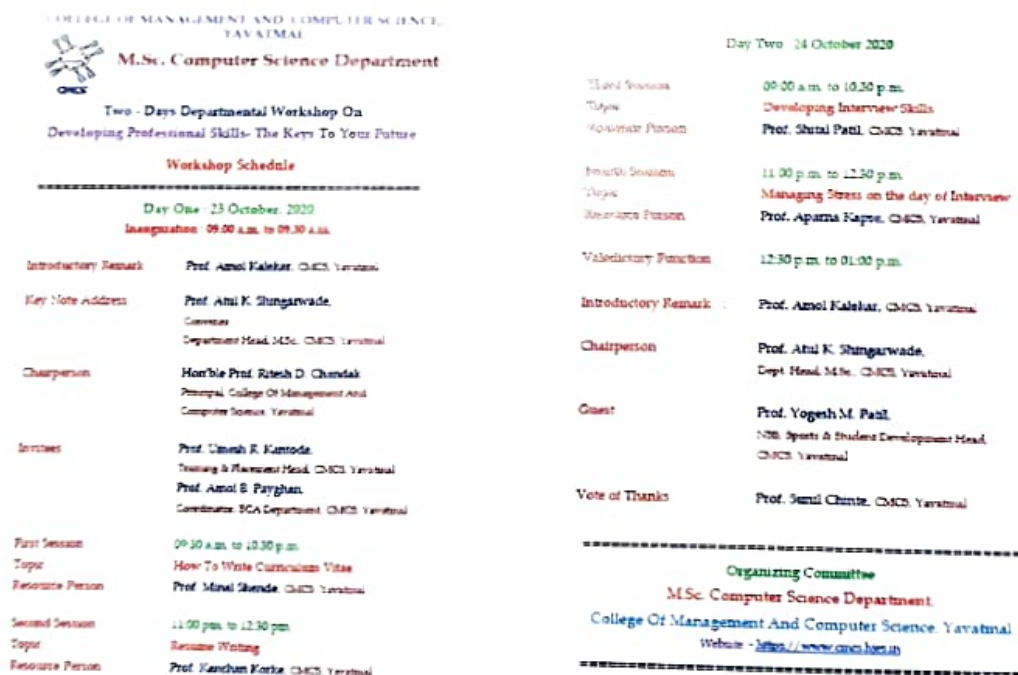 COLLEGE OF MANAGEMENT AND COMPUTER SCIENCE,
YAVATMAL
M.Sc. Computer Science Department
CMCS
Two - Days Departmental Workshop On
Developing Professional Skills- The Keys To Your Future
Workshop Schedule
Day One : 23 October, 2020
Inauguration : 09.00 a.m. to 09.30 a.m.
Introductory Remark Prof. Amol Kalekar, CMCS, Yavatmal
Key Note Address Prof. Atul K. Shingarwade,
Convener
Department Head, M.Sc., CMCS, Yavatmal
Chairperson Hon'ble Prof. Ritesh D. Chandak
Principal, College Of Management And
Computer Science, Yavatmal
Invitees Prof. Umesh R. Kantode,
Training & Placement Head, CMCS, Yavatmal
Prof. Amol B. Payghan,
Coordinator, BCA Department, CMCS, Yavatmal
First Session 09.30 a.m. to 10.30 p.m.
Topic How To Write Curriculum Vitae
Resource Person Prof. Minal Shende, CMCS, Yavatmal
Second Session 11:00 p.m. to 12:30 p.m.
Topic Resume Writing
Resource Person Prof. Kanchan Korke, CMCS, Yavatmal
Day Two : 24 October 2020
Third Session 09:00 a.m. to 10.30 p.m.
Topic Developing Interview Skills
Resource Person Prof. Shital Patil, CMCS, Yavatmal
Fourth Session 11.00 p.m. to 12.30 p.m.
Topic Managing Stress on the day of Interview
Resource Person Prof. Aparna Kapse, CMCS, Yavatmal
Valedictory Function 12:30 p.m. to 01:00 p.m.
Introductory Remark : Prof. Amol Kalekar, CMCS, Yavatmal
Chairperson Prof. Atul K. Shingarwade,
Dept. Head, M.Sc., CMCS, Yavatmal
Guest Prof. Yogesh M. Patil,
NSS, Sports & Student Development Head,
CMCS, Yavatmal
Vote of Thanks Prof. Sunil Chinte, CMCS, Yavatmal
Organizing Committee
M.Sc. Computer Science Department,
College Of Management And Computer Science, Yavatmal
Website -